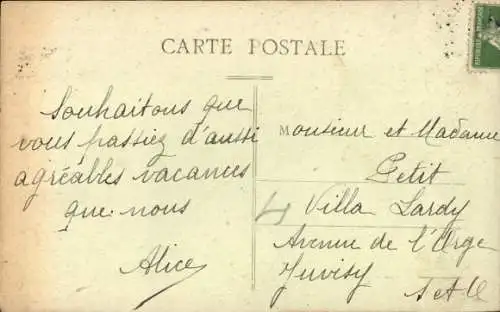 CARTE POSTALE
Souhaitons que
vous passiez d'aussi
agréables vacances
que nous
Alice
Monsieur et Madame
Petit
Villa Lardy
Avenue de l'Orge
Juvisy
S et O